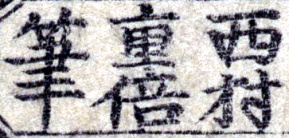 西村
重倍
筆